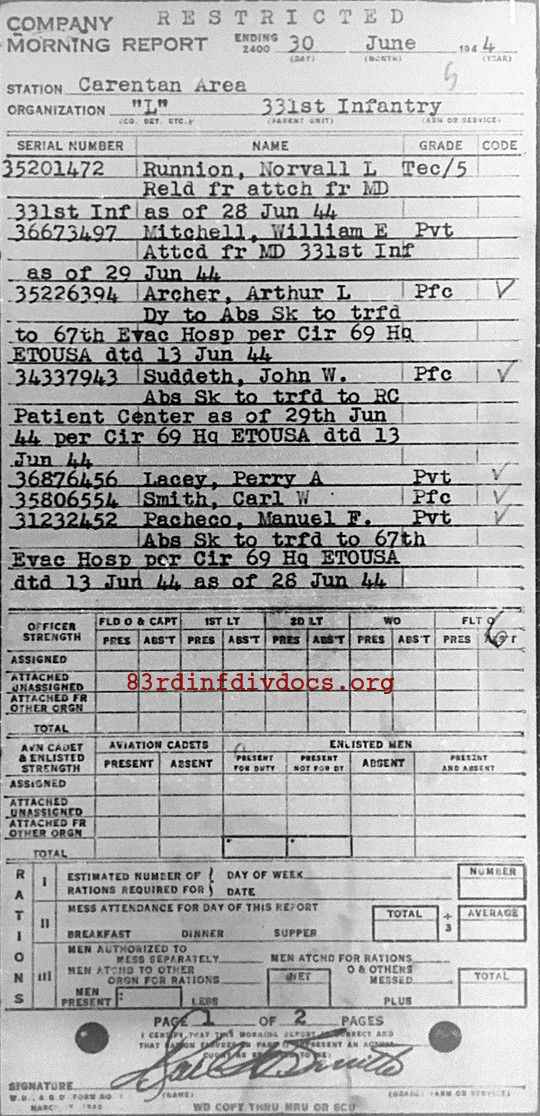 RESTRICTED
COMPANY
MORNING REPORT ENDING 2400 30 June 1944
(DAY) (MONTH) (YEAR)
STATION Carentan Area
ORGANIZATION "L" 331st Infantry
(CO. DET. ETC.) (PARENT UNIT) (ARM OR SERVICE)
SERIAL NUMBER NAME GRADE CODE
35201472 Runnion, Norvall L Tec/5
Reld fr attch fr MD
331st Inf as of 28 Jun 44
36673497 Mitchell, William E Pvt
Attcd fr MD 331st Inf
as of 29 Jun 44
35226394 Archer, Arthur L Pfc ✓
Dy to Abs Sk to trfd
to 67th Evac Hosp per Cir 69 Hq
ETOUSA dtd 13 Jun 44
34337943 Suddeth, John W. Pfc ✓
Abs Sk to trfd to RC
Patient Center as of 29th Jun
44 per Cir 69 Hq ETOUSA dtd 13
Jun 44
36876456 Lacey, Perry A Pvt ✓
35806554 Smith, Carl W Pfc ✓
31232452 Pacheco, Manuel F. Pvt ✓
Abs Sk to trfd to 67th
Evac Hosp per Cir 69 Hq ETOUSA
dtd 13 Jun 44 as of 28 Jun 44
OFFICER STRENGTH FLD O & CAPT 1ST LT 2D LT WO FLT O
PRES ABS'T PRES ABS'T PRES ABS'T PRES ABS'T PRES
ASSIGNED
ATTACHED UNASSIGNED
83rdinfdivdocs.org
ATTACHED FR OTHER ORGN
TOTAL
AVN CADET & ENLISTED STRENGTH AVIATION CADETS ENLISTED MEN
PRESENT ABSENT PRESENT FOR DUTY PRESENT NOT FOR DY ABSENT PRESENT AND ABSENT
ASSIGNED
ATTACHED UNASSIGNED
ATTACHED FR OTHER ORGN
TOTAL
RATIONS
I ESTIMATED NUMBER OF RATIONS REQUIRED FOR { DAY OF WEEK DATE NUMBER
II MESS ATTENDANCE FOR DAY OF THIS REPORT TOTAL ÷ 3 AVERAGE
BREAKFAST DINNER SUPPER
III MEN AUTHORIZED TO MESS SEPARATELY MEN ATCHD FOR RATIONS
MEN ATCHD TO OTHER ORGN FOR RATIONS NET O & OTHERS MESSED TOTAL
MEN PRESENT LESS PLUS
PAGE 1 OF 2 PAGES
I CERTIFY THAT THIS MORNING REPORT IS CORRECT AND
SIGNATURE
(NAME) (GRADE) (ARM OR SERVICE)
W.D., A.G.O. FORM NO 1
WD COPY THRU MRU OR SCU